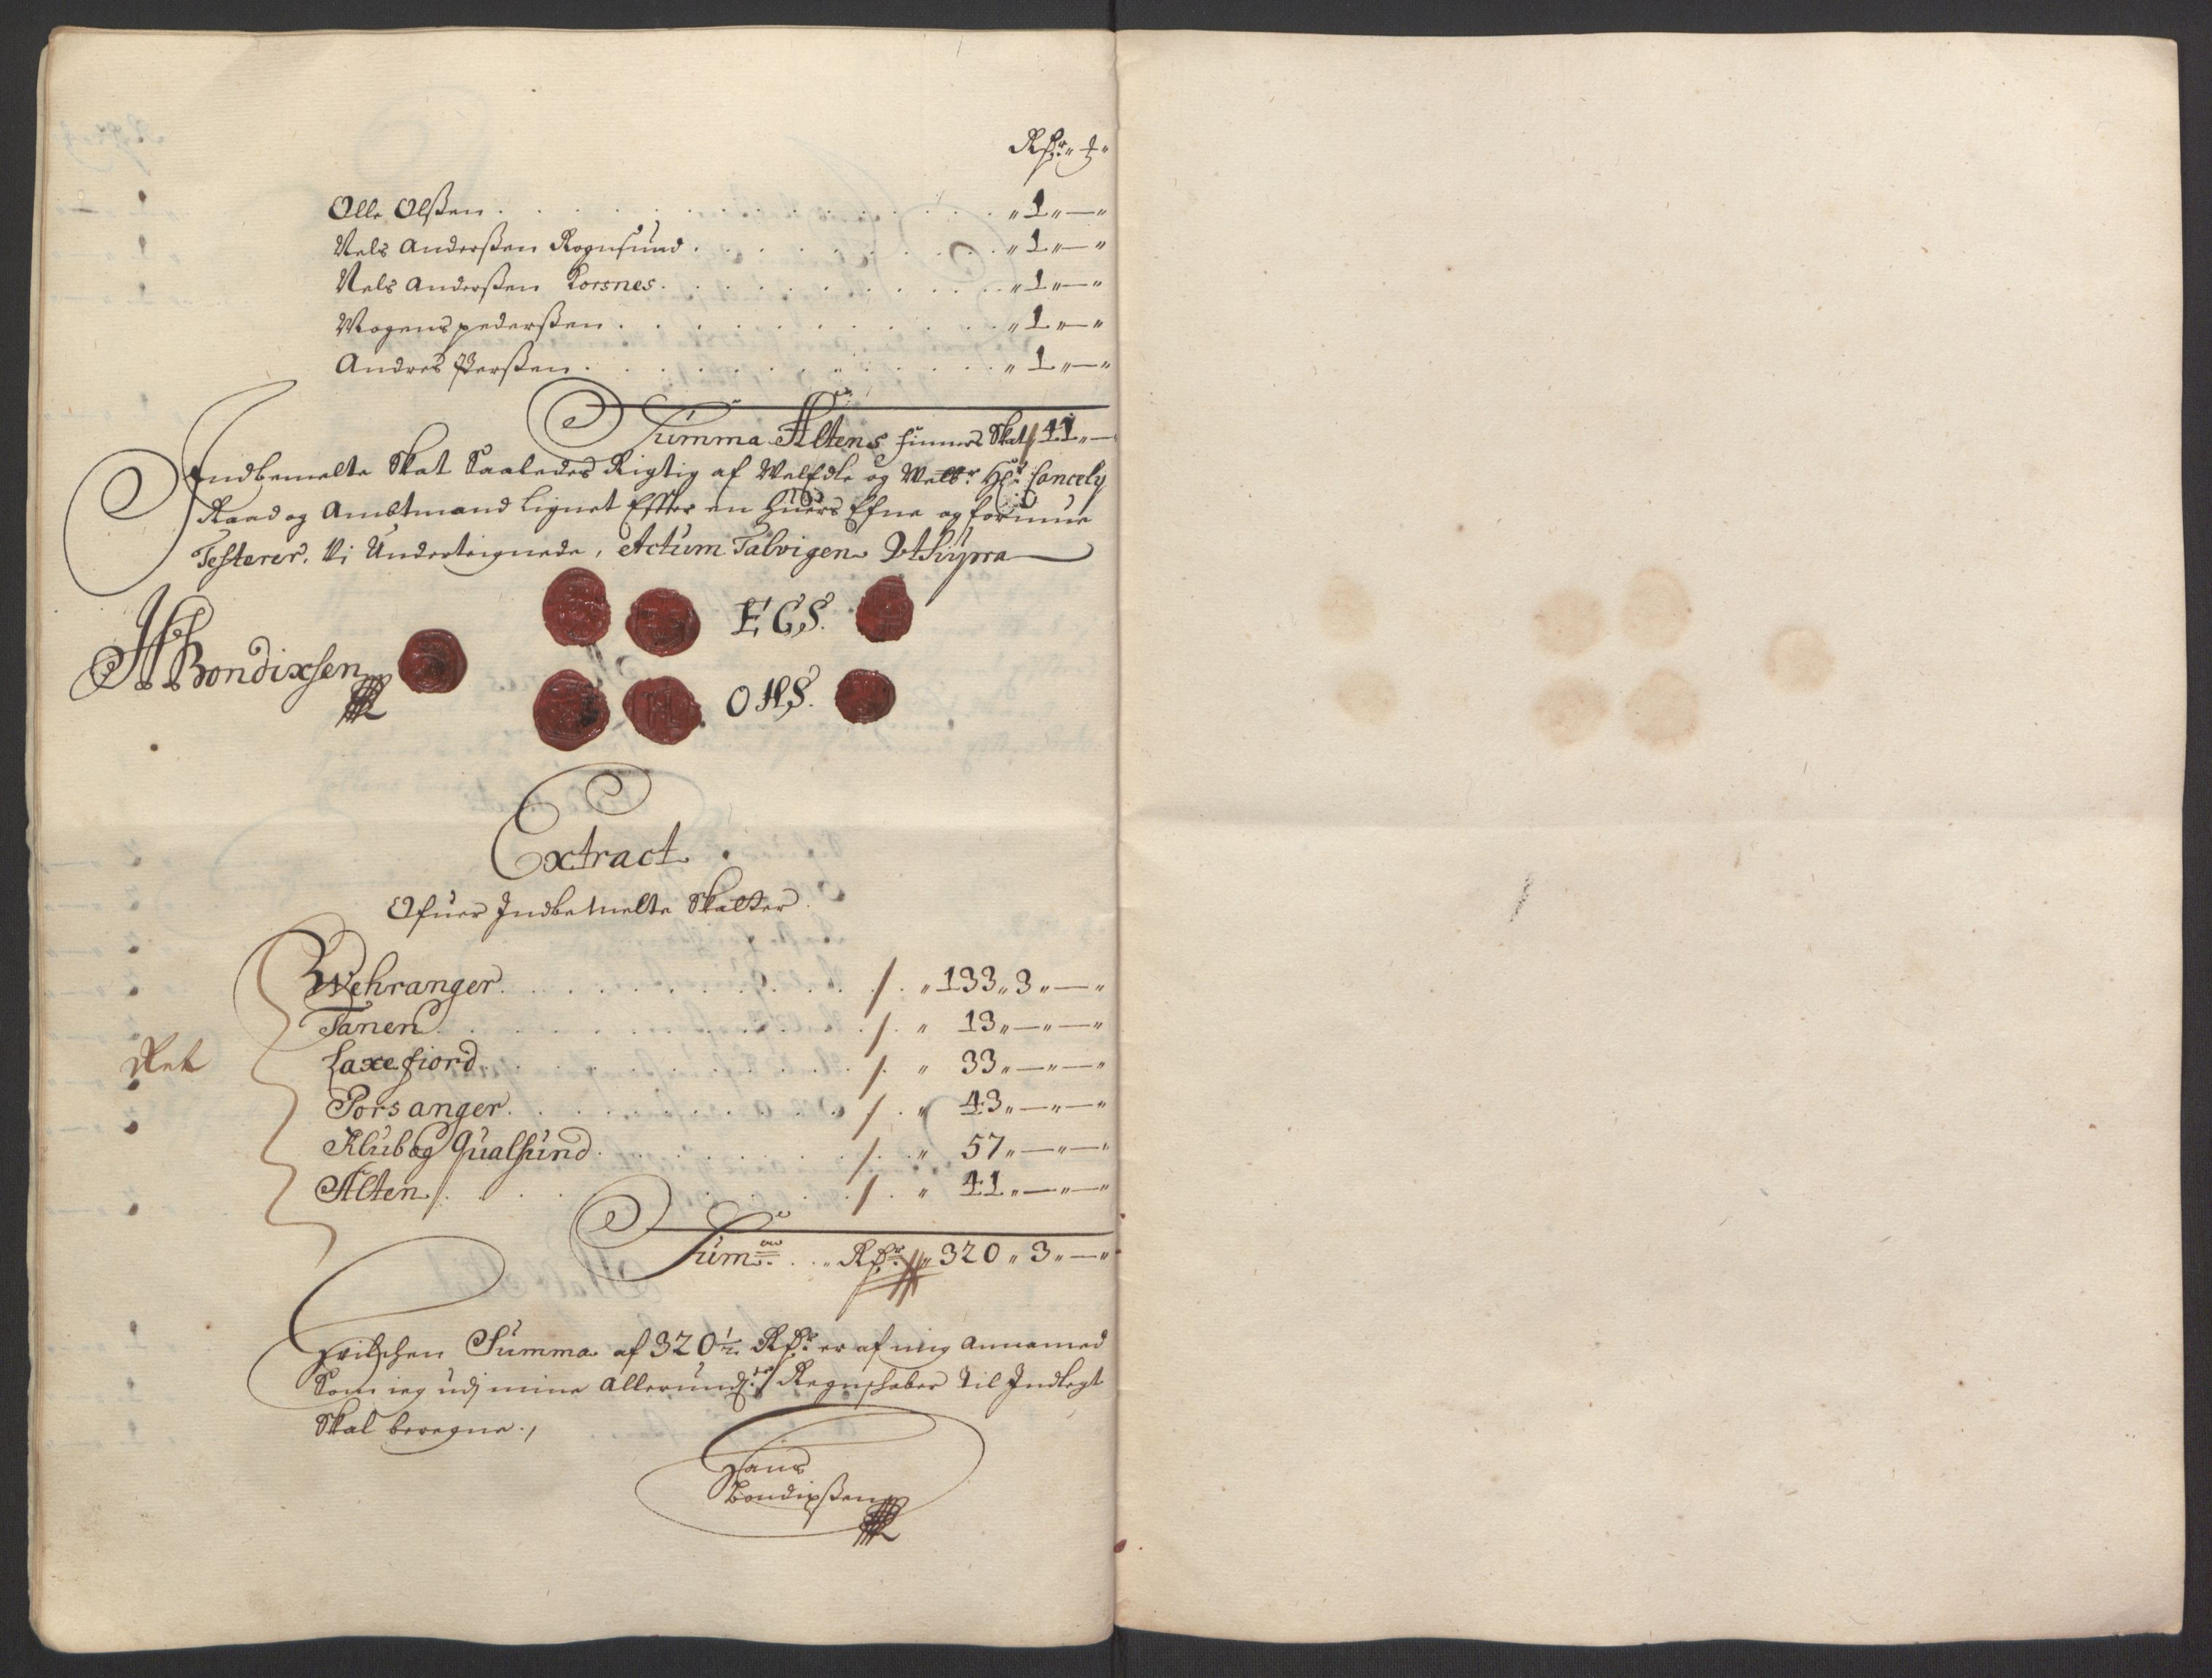 Rdr „ ß „
Olle Olßen . . . „ 1 „ — „
Nels Anderßen Rognsund . . . „ 1 „ — „
Nels Anderßen Korsnes . . . „ 1 „ — „
Mogens pederßen . . . „ 1 „ — „
Andres Perßen . . . „ 1 „ — „
Summa Altens finners Skat 41 „ —
Indbemelte Skat Saaledes Rigtig af WelEdle og Welbr: Hr: Cancely
Raad og Ambtmand Lignet Effter en huers Efne og formue
Testerer. Vi Underteignede, Actum Talvigen Ut Supra
E C S.
HBondixsen
O H S.
Extract
Ofuer Indbemelte Skatter
Wehranger . . . „ 133 „ 3 „ — „
Tanen . . . „ 13 „ — „ — „
Ret
Laxefiord . . . „ 33 „ — „ — „
Porsanger . . . „ 43 „ — „ — „
Klub og Qualsund . . . „ 57 „ — „ — „
Alten . . . „ 41 „ — „ — „
Suma . . „ Rdr „ 320 „ 3 „ — „
Hvilchen Summa af 320½ Rdr er af mig annamed
Som ieg udj mine allerund: Regnskaber til Indtegt
Skal beregne .,
Hans
Bendixßen